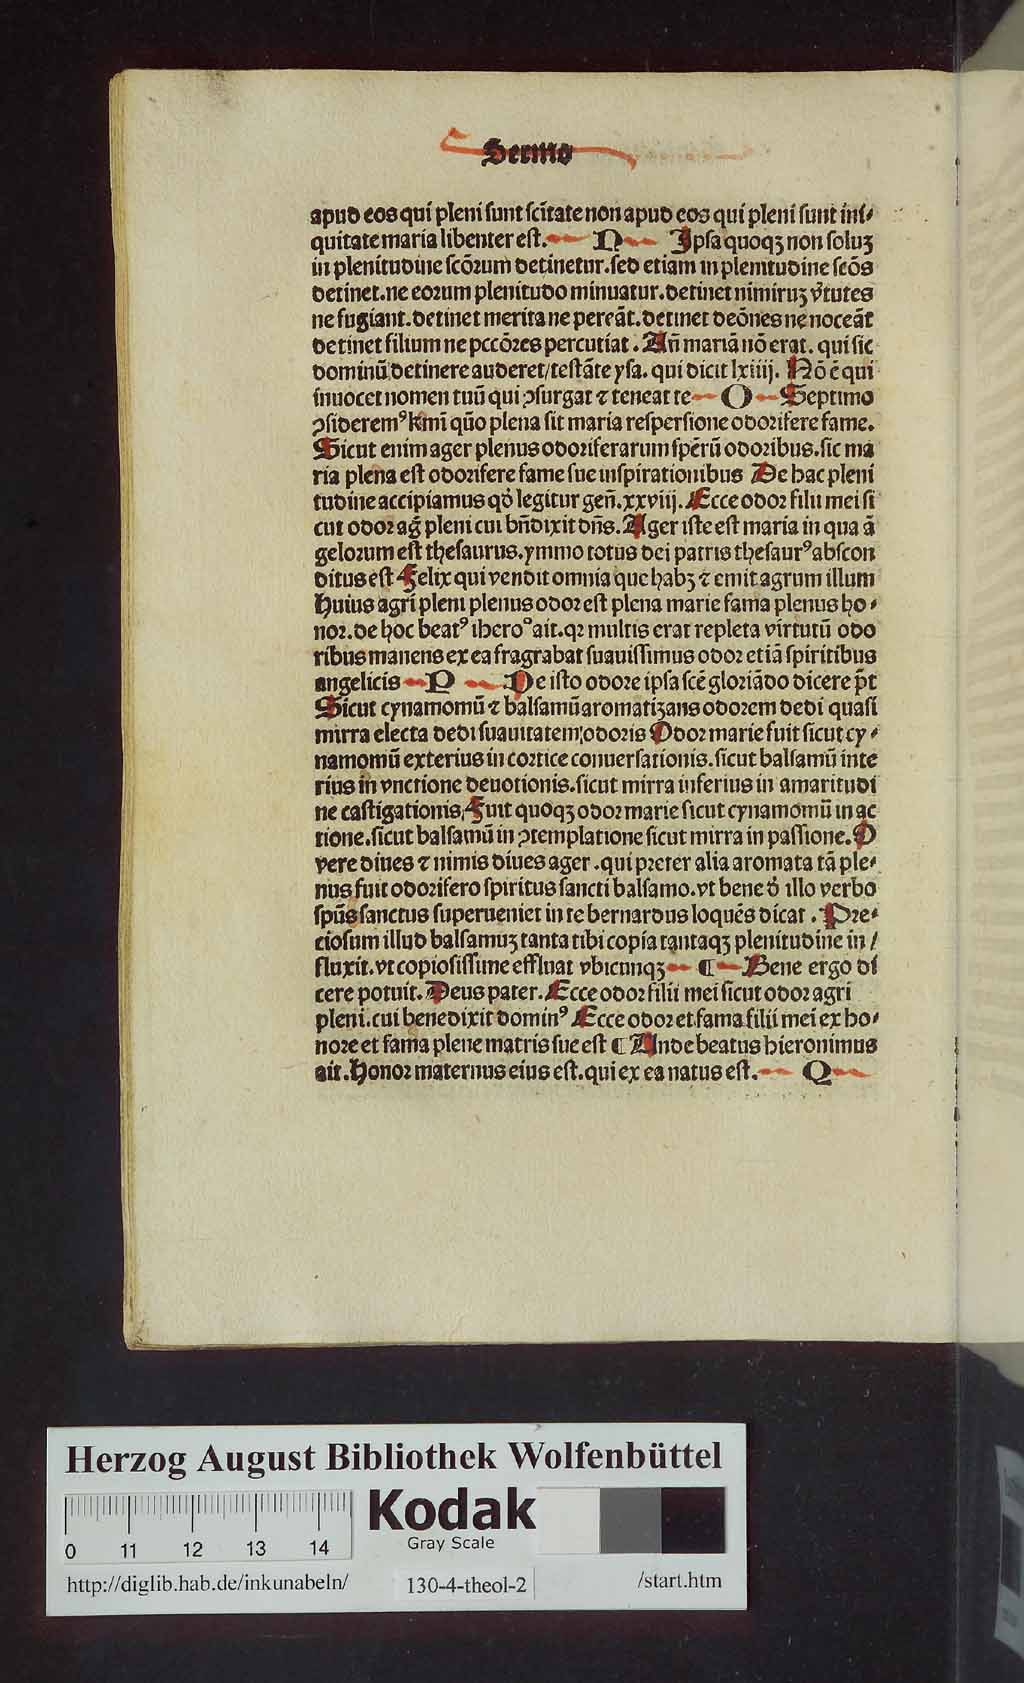 Sermo
apud eos qui pleni sunt scītate non apud eos qui pleni sunt ini⸗
quitate maria libenter est. N Ipsa quoqꝫ non soluꝫ
in plenitudine scōrum detinetur. sed etiam in plenitudine scōs
detinet. ne eorum plenitudo minuatur. detinet nimiruꝫ v̄tutes
ne fugiant. detinet merita ne pereāt. detinet deōnes ne noceāt
detinet filium ne pccōres percutiat. Añ mariā nō erat. qui sic
dominū detinere auderet / testāte ysa. qui dicit lxiiij. Nō ē qui
inuocet nomen tuū qui ꝯsurgat ⁊ teneat te O Septimo
ꝯsideremꝰ kīm̄ quō plena sit maria respersione odorifere fame.
Sicut enim ager plenus odoriferarum sperū odoribus. sic ma
ria plena est odorifere fame sue inspirationibus De hac pleni
tudine accipiamus qḋ legitur geñ. xxviij. Ecce odor filii mei si
cut odor ag̃ pleni cui bñdixit dñs. Ager iste est maria in qua ā
gelorum est thesaurus. ymmo totus dei patris thesaurꝰ abscon
ditus est Felix qui vendit omnia que habꝫ ⁊ emit agrum illum
Huius agri pleni plenus odor est plena marie fama plenus ho⸗
nor. de hoc beatꝰ ihero° ait. qꝛ multis erat repleta virtutū odo
ribus manens ex ea fragrabat suauissimus odor etiā spiritibus
angelicis P De isto odore ipsa scē gloriādo dicere p̄t
Sicut cynamomū ⁊ balsamū aromatizans odorem dedi quasi
mirra electa dedi suauitatem odoris Odor marie fuit sicut cy⸗
namomū exterius in cortice conuersationis. sicut balsamū inte
rius in vnctione deuotionis. sicut mirra inferius in amaritudi
ne castigationis. Fuit quoqꝫ odor marie sicut cynamomū in ac
tione. sicut balsamū in ꝯtemplatione sicut mirra in passione. O
vere diues ⁊ nimis diues ager. qui preter alia aromata tā ple⸗
nus fuit odorifero spiritus sancti balsamo. vt bene ḋ illo verbo
spūs sanctus superueniet in te bernardus loquēs dicat. Pre⸗
ciosum illud balsamuꝫ tanta tibi copia tantaqꝫ plenitudine in /
fluxit. vt copiosissime effluat vbicunqꝫ ¶ Bene ergo di
cere potuit. Deus pater. Ecce odor filii mei sicut odor agri
pleni. cui benedixit dominꝰ Ecce odor et fama filii mei ex ho⸗
nore et fama plene matris sue est ¶ Unde beatus hieronimus
ait. Honor maternus eius est. qui ex ea natus est. Q
Herzog August Bibliothek Wolfenbüttel
0 11 12 13 14
Kodak
Gray Scale
http://diglib.hab.de/inkunabeln/ 130-4-theol-2 /start.htm